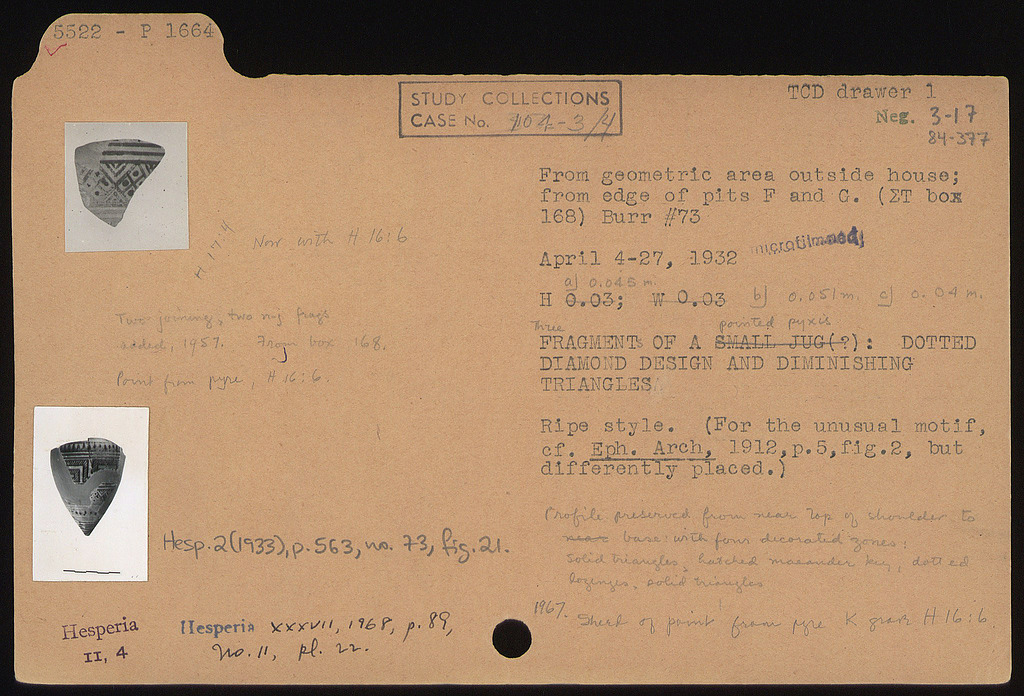 5522 - P 1664
STUDY COLLECTIONS
CASE No. 104-3/4
TCD drawer 1
Neg. 3-17
84-377
From geometric area outside house;
from edge of pits F and G. (ΣT box
168) Burr #73
April 4-27, 1932 microfilmed
a) 0.045 m.
H 0.03; W 0.03 b) 0.051 m. c) 0.04 m.
Three pointed pyxis
FRAGMENTs OF A SMALL JUG(?): DOTTED
DIAMOND DESIGN AND DIMINISHING
TRIANGLES
Ripe style. (For the unusual motif,
cf. Eph. Arch, 1912,p.5,fig.2, but
differently placed.)
Profile preserved from near top of shoulder to
near base: with four decorated zones:
solid triangles, hatched maeander key, dotted
lozenges, solid triangles
1967. Sherd of point from pyre K grave H 16:6.
H 17:4
Now with H 16:6
Two joining, two n-j frags
added, 1957. From box 168.
Point from pyre, H 16:6.
Hesp. 2 (1933), p. 563, no. 73, fig. 21.
Hesperia
II, 4
Hesperia XXXVII, 1968, p. 89,
no. 11, pl. 22.